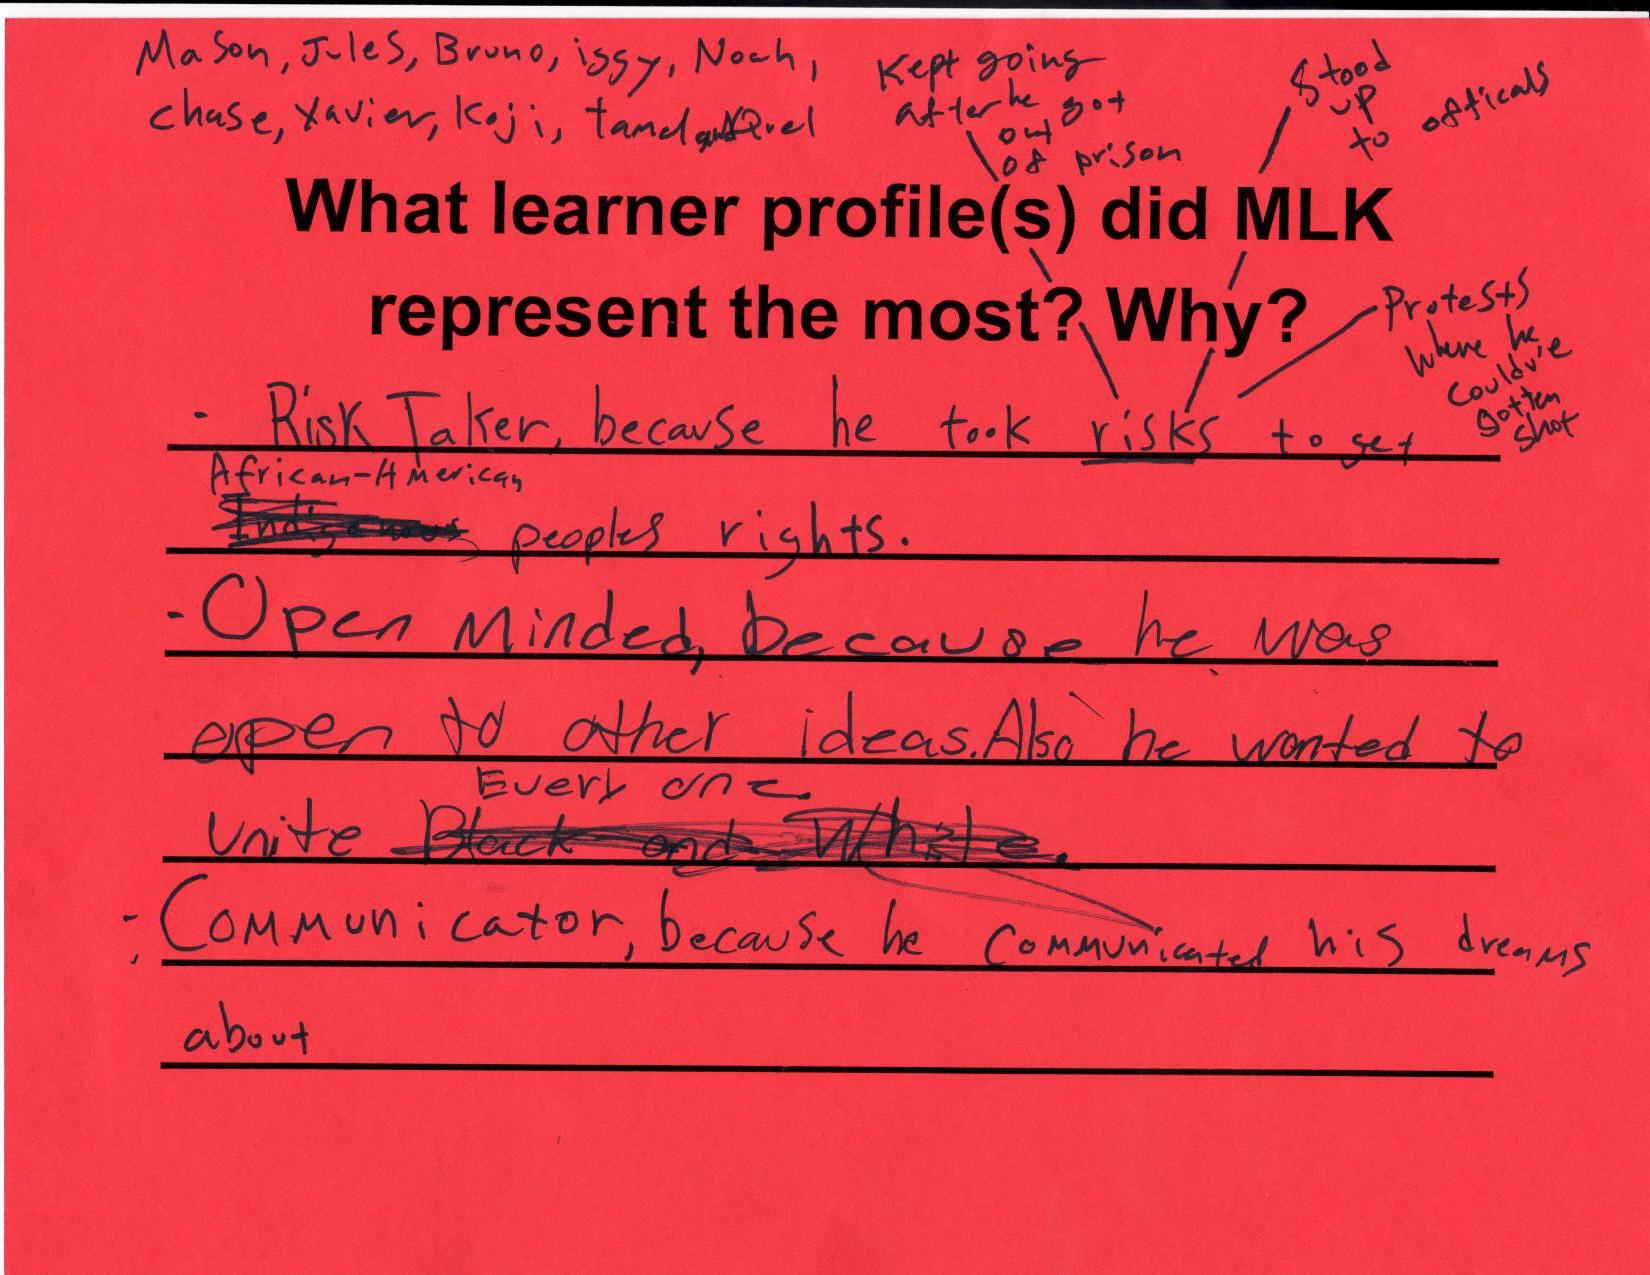 Mason, Jules, Bruno, iggy, Noah,
chase, Xavier, Koji, tamel
Kept going
after he got
out
of prison
Stood
up
to officals
What learner profile(s) did MLK
represent the most? Why?
Protests
where he
Could'v'e
gotten
shot
- Risk Taker, because he took risks to get
African-American
Indigenous peoples rights.
- Open Minded, because he was
open to other ideas. Also he wanted to
Every one.
unite Black and White.
- Communicator, because he communicated his dreams
about